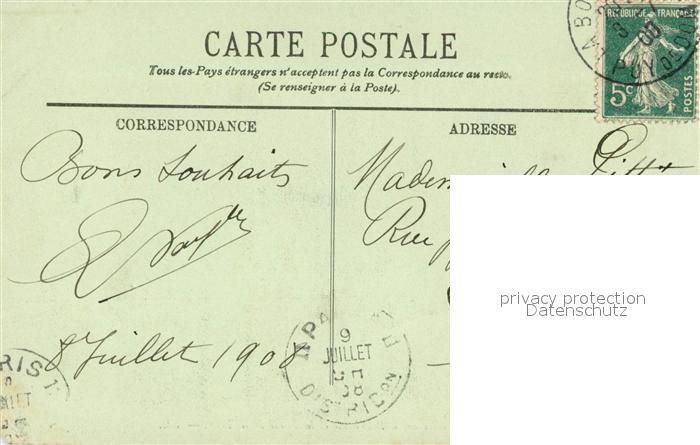 CARTE POSTALE
Tous les Pays étrangers n'acceptent pas la Correspondance au recto.
(Se renseigner à la Poste).
CORRESPONDANCE
Bons souhaits
8 Juillet 1908
ADRESSE
Rue
RÉPUBLIQUE FRANÇAISE
5c
POSTES
PUY DE DOME
PARIS
9
JUILLET
DISTRIBON
privacy protection
Datenschutz